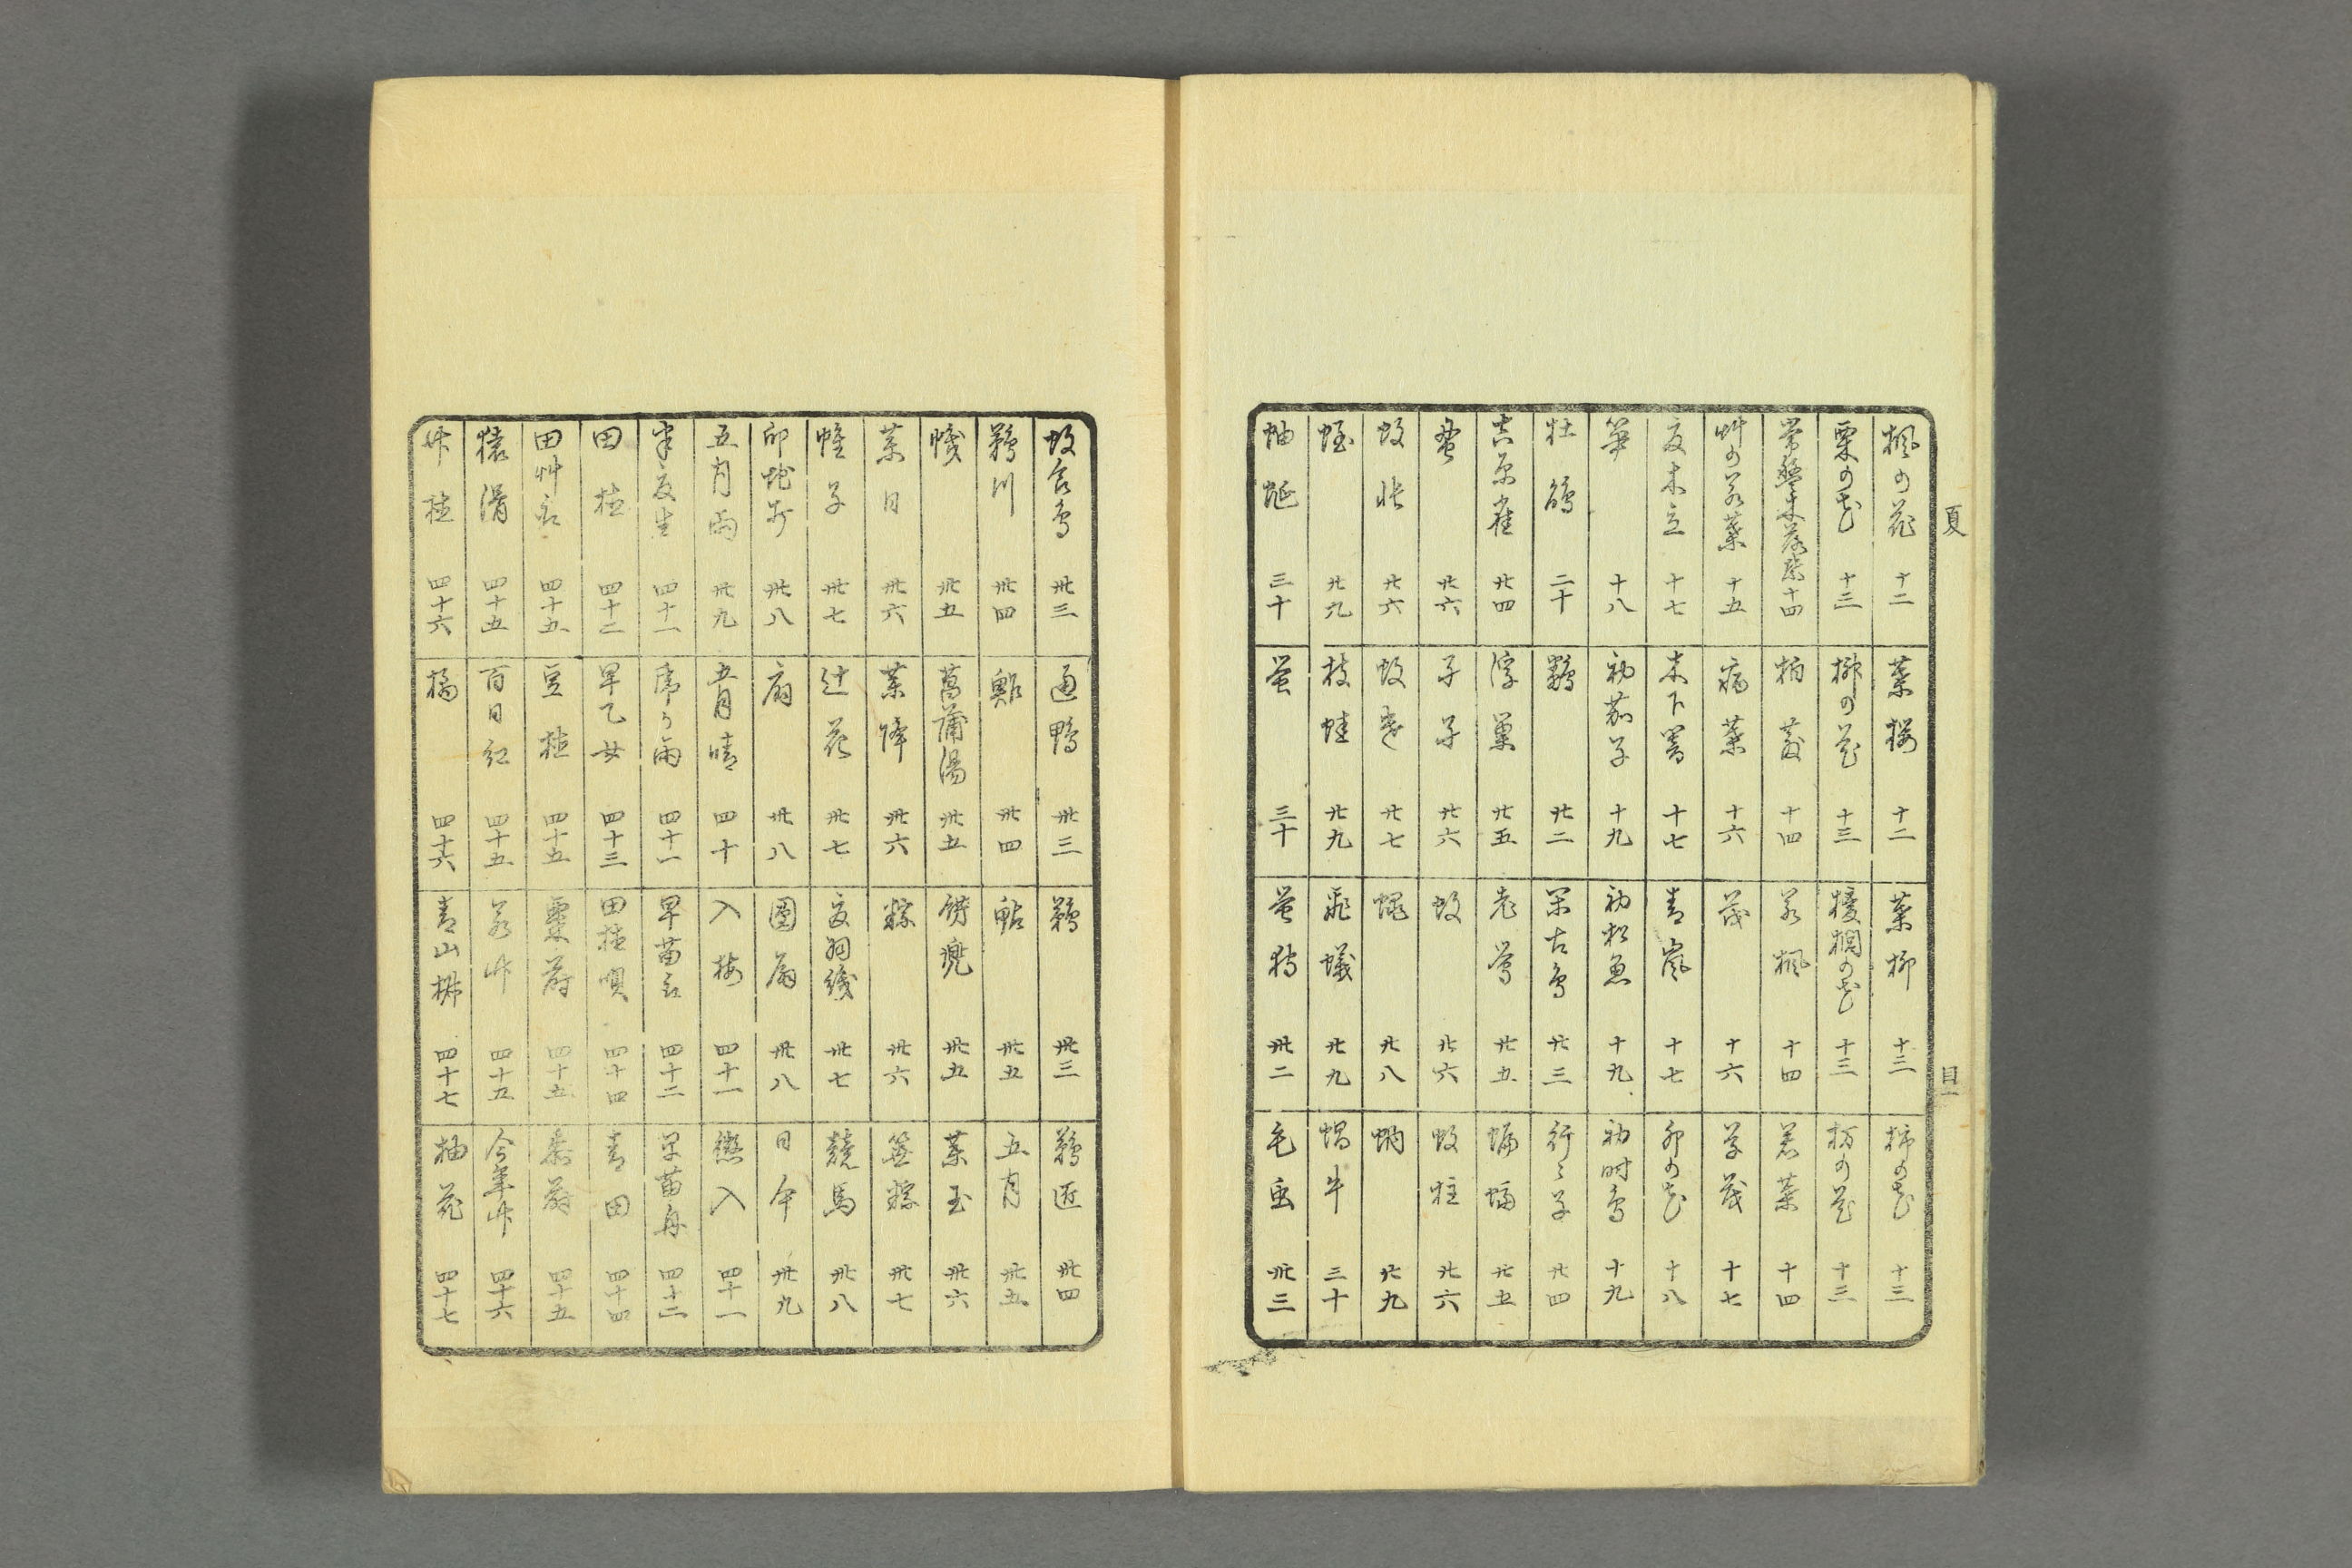 夏
目一
楓の花 十二
葉桜 十二
葉柳 十三
柿の花 十三
栗の花 十三
榊の花 十三
椶櫚の花 十三
十三
常盤木落葉 十四
柏 十四
若楓 十四
若葉 十四
艸の若葉 十五
病葉 十六
茂 十六
草茂 十七
夏木立 十七
木下闇 十七
青嵐 十七
卯の花 十八
笋 十八
初茄子 十九
初松魚 十九
初時鳥 十九
牡 二十
鷄 廿二
閑古鳥 廿三
行々子 廿四
吉原雀 廿四
浮巣 廿五
老鶯 廿五
蝙蝠 廿五
蚤 廿六
孑孑 廿六
蚊 廿六
蚊柱 廿六
蚊帳 廿六
蚊遣 廿七
蠅 廿八
蚋 廿九
蛭 廿九
枝蛙 廿九
飛蟻 廿九
蝸牛 三十
蚰蜒 三十
蛍 三十
蛍狩 卅二
毛虫 卅三
蚊食鳥 卅三
通鴨 卅三
鵜 卅三
鵜匠 卅四
鵜川 卅四
鮓 卅四
鮎 卅五
五月 卅五
幟 卅五
菖蒲湯 卅五
兜 卅五
薬玉 卅六
薬日 卅六
薬降 卅六
粽 卅六
笹粽 卅七
帷子 卅七
辻花 卅七
夏羽織 卅七
競馬 卅八
卅八
扇 卅八
團扇 卅八
日傘 卅九
五月雨 卅九
五月晴 四十
入梅 四十一
四十一
半夏生 四十一
虎が雨 四十一
早苗取 四十二
早苗舟 四十二
田植 四十二
早乙女 四十三
田植唄 四十四
青田 四十四
田艸取 四十五
豆植 四十五
粟蒔 四十五
黍蒔 四十五
猿滑 四十五
百日紅 四十五
若竹 四十五
今年竹 四十六
竹植 四十六
橘 四十六
青山椒 四十七
柚花 四十七